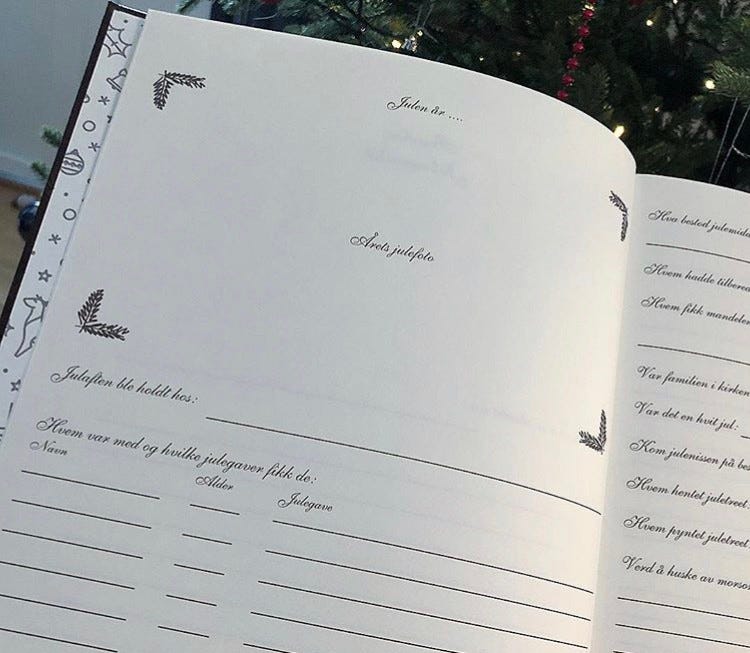 Julen år ....
Årets julefoto
Julaften ble holdt hos:
Hvem var med og hvilke julegaver fikk de:
Navn Alder Julegave
Hva bestod
Hvem hadde
Hvem fikk
Var familien i
Var det en hvit jul:
Kom julenissen på
Hvem hentet juletreet
Hvem pyntet juletreet
Verd å huske av